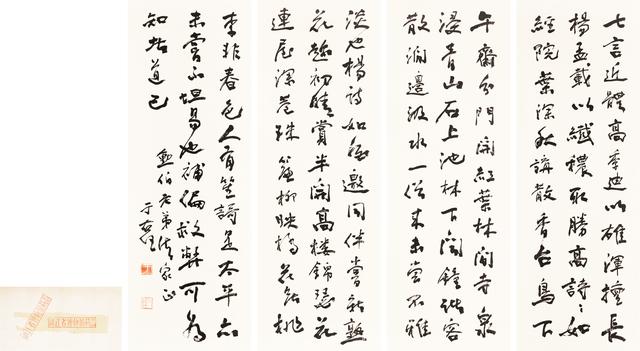 七言近體高季迪以雄渾擅長
楊孟載以纖穠取勝高詩〻如
經院葉深秋講散香台鳥下
午齋分門開紅葉林間寺泉
浸青山石上池林下聞鐘諸客
散澗邊汲水一僧來未嘗不雅
淡也楊詩如酒邀同伴嘗新熟
花趁初晴賞半開高樓錦瑟花
連屋深巷珠簾柳映橋花點桃
李非春色人有笙謌是太平亦
未嘗不坦易也補偏救弊可為
知者道已
伯老弟法家正
于右任